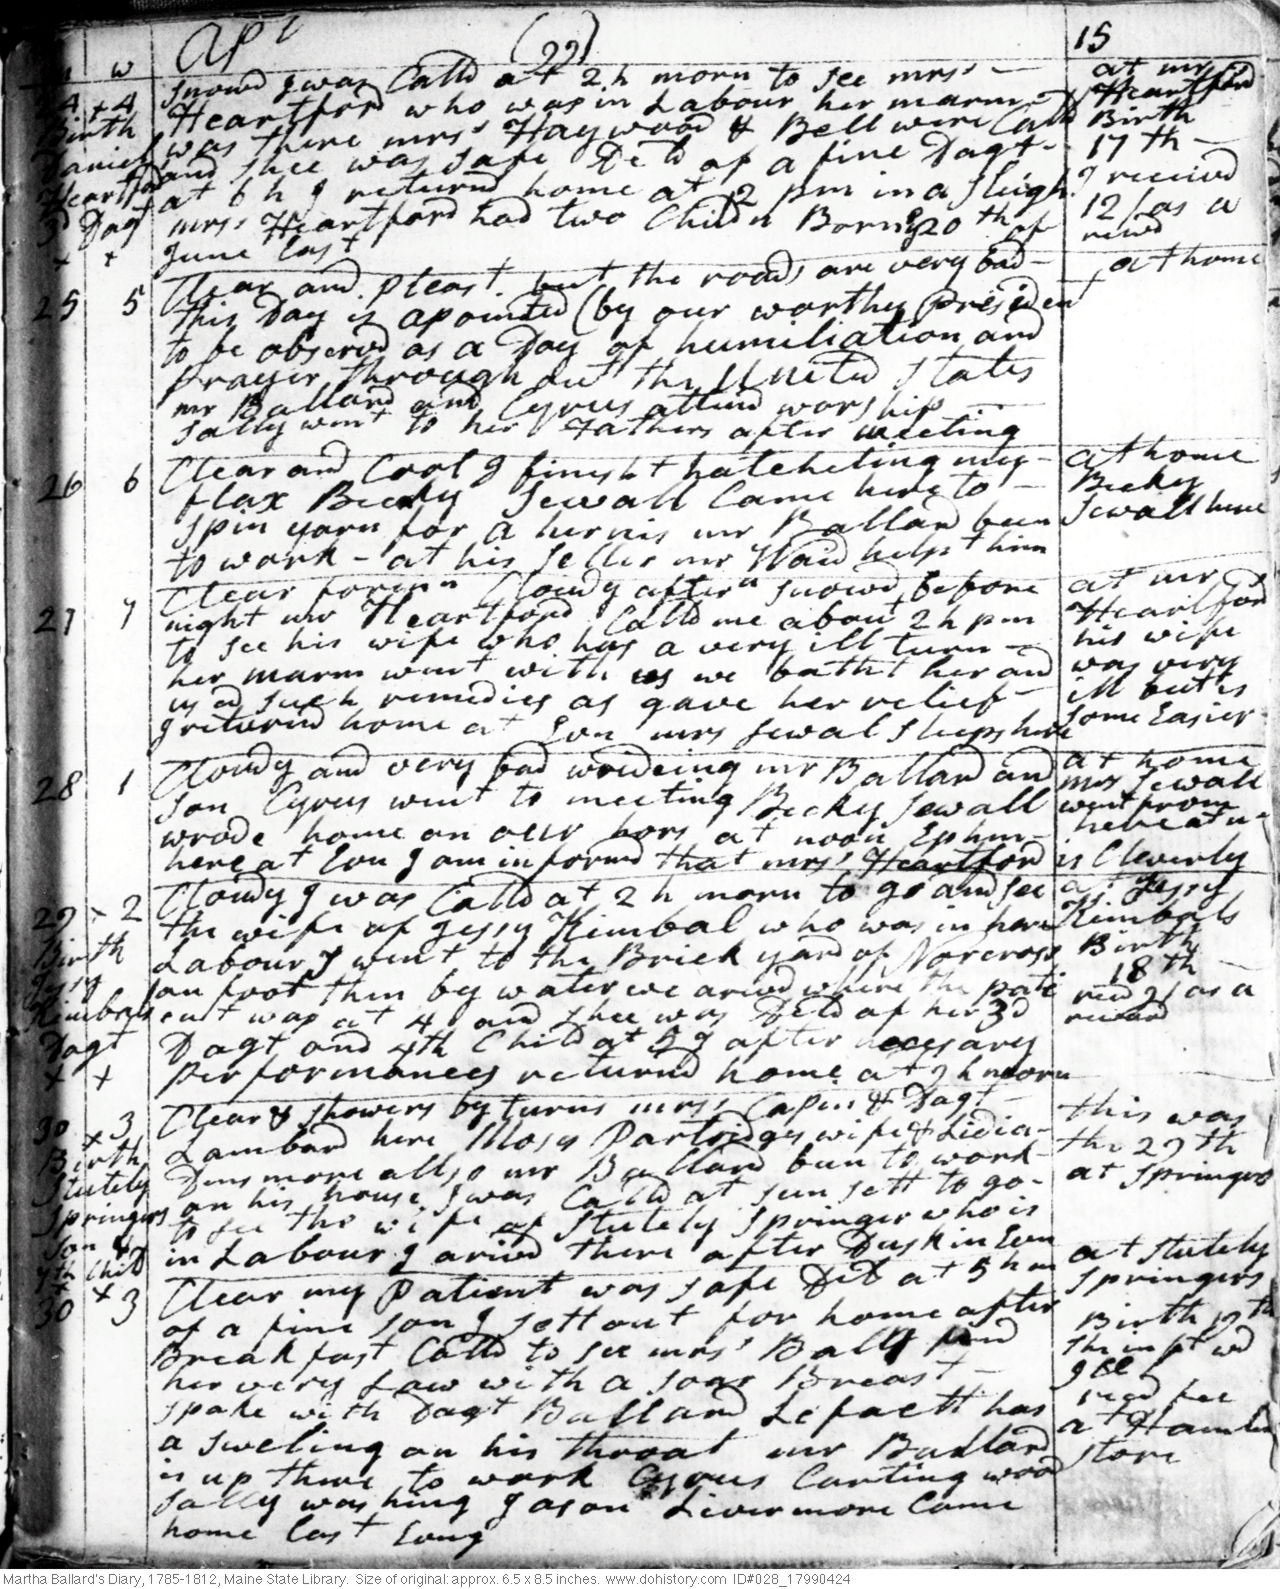 Apl (99) 15
m w
24 + 4
Birth
Daniel
Heartford
3d Dagt
+ +
snowd I was Calld at 2 h morn to see mrss
Heartford who was in Labour her marm
was there mrss Haywood & Bell were Calld
and shee was safe Deld of a fine Dagt
at 6 h I returnd home at 12 pm in a sleigh
mrss Heartford had two Childn Born 20th of
June last
at mr
Heartford
Birth
17th
I received
12/ as a
reward
25 5
Clear and pleast but the roads are very bad
this Day is apointed (by our worthy President
to be observd as a Day of humiliation and
prayer through out the United States
mr Ballard and Cyrus attend worship
Sally went to her Fathers after meeting
at home
26 6
Clear and Cool I finisht hatcheling my
flax Becky Sewall Came here to
spin yarn for a hernis mr Ballard been
to work - at his Celler mr Waid helpt him
at home
Becky
Sewall here
27 7
Clear foren Cloudy aftern snowd before
night mr Heartford Calld me about 2 h pm
to see his wife who has a very ill turn
her marm went with us we batht her and
usd such remedies as gave her relief
I returnd home at Evn mrs Sewal sleeps here
at mr
Heartford
his wife
was very
ill but is
some Easier
28 1
Cloudy and very bad wrideing mr Ballard and
son Cyrus went to meeting Becky Sewall
wrode home on our hors at noon Ephm
here at Evn I am informd that mrss Heartford is Cleverly
at home
mrs Sewall
went from
here at n
29 + 2
Birth
Jessy
Kimbals
Dagt
+ +
Cloudy I was Calld at 2 h morn to go and see
the wife of Jessy Kimbal who was in hard
Labour I went to the Brick yard of Norcross
on foot then by water we arivd where the pati
ent was at 4 and shee was Deld of her 3d
Dagt and 4th Child at 5 I after necesary
performances returnd home at 9 h morn
at Jessy
Kimbals
Birth
18th
recd 9/ as a
reward
30 + 3
Birth
Stutely
Springers
son &
7th Child
Clear & showers by turns mrss Capin & Dagt
Lambard here Moses Partridges wife & Lidia
Densmore allso mr Ballard bun to work
on his house I was Calld at sun sett to go
to see the wife of Stutely Springer who is
in Labour I arivd there after Dusk in Evn
this was
the 29th
at Springers
30 + 3
Clear my Patient was safe Deld at 5 h m
of a fine son I sett out for home after
Breakfast Calld to see mrss Ball find
her very Law with a soar Breast
spake with Dagt Ballard Lefaett has
a sweling on his throat mr Ballard
is up there to work Cyrus Carting wood
Sally washing Jason Livermore Came
home last Evng
at Stutely
Springers
Birth 19th
recd fee
at Hamlin
store
Martha Ballard's Diary, 1785-1812, Maine State Library. Size of original: approx. 6.5 x 8.5 inches. www.dohistory.com ID#028_17990424